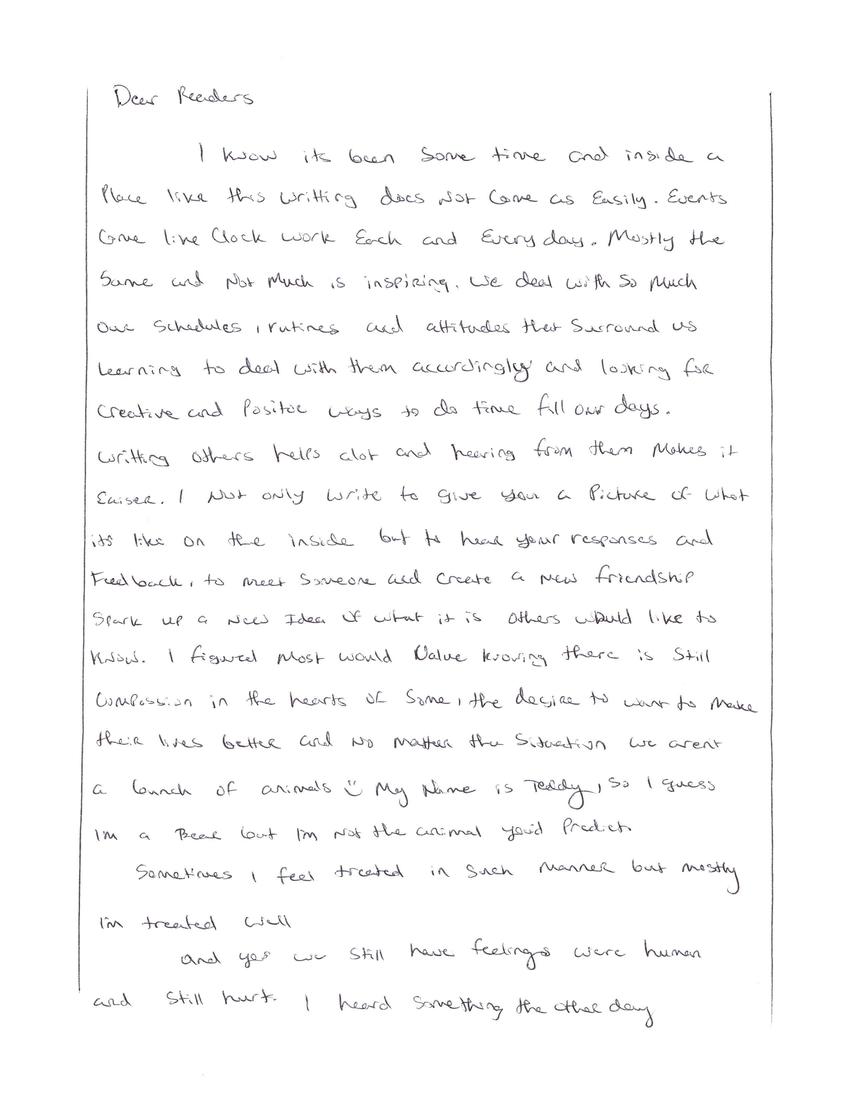 Dear Readers
I know its been some time and inside a
Place like this writting does Not Come as Easily. Events
Come like Clock work Each and Every day. Mostly the
Same and Not Much is inspiring. We deal with So Much
Our Schedules, rutines and attitudes that Surround us
Learning to deal with them accordingly and looking for
Creative and Positve ways to do time fill our days.
writting others helps alot and hearing from them Makes it
Eaiser. I Not only write to give you a Picture of what
its like on the inside but to hear your responses and
Feedback, to meet Someone and Create a New friendship
Spark up a New Idea of what it is others would like to
Know. I figured Most would Value knowing there is Still
Compassion in the hearts of Some, the desire to want to Make
their lives better and No matter the Situation we arent
a bunch of animals My Name is Teddy, So I guess
I'm a Bear but I'm Not the animal you'd Predict.
Sometimes I feel treated in Such manner but mostly
I'm treated well
and yes we Still have feelings were human
and Still hurt. I heard Something the other day